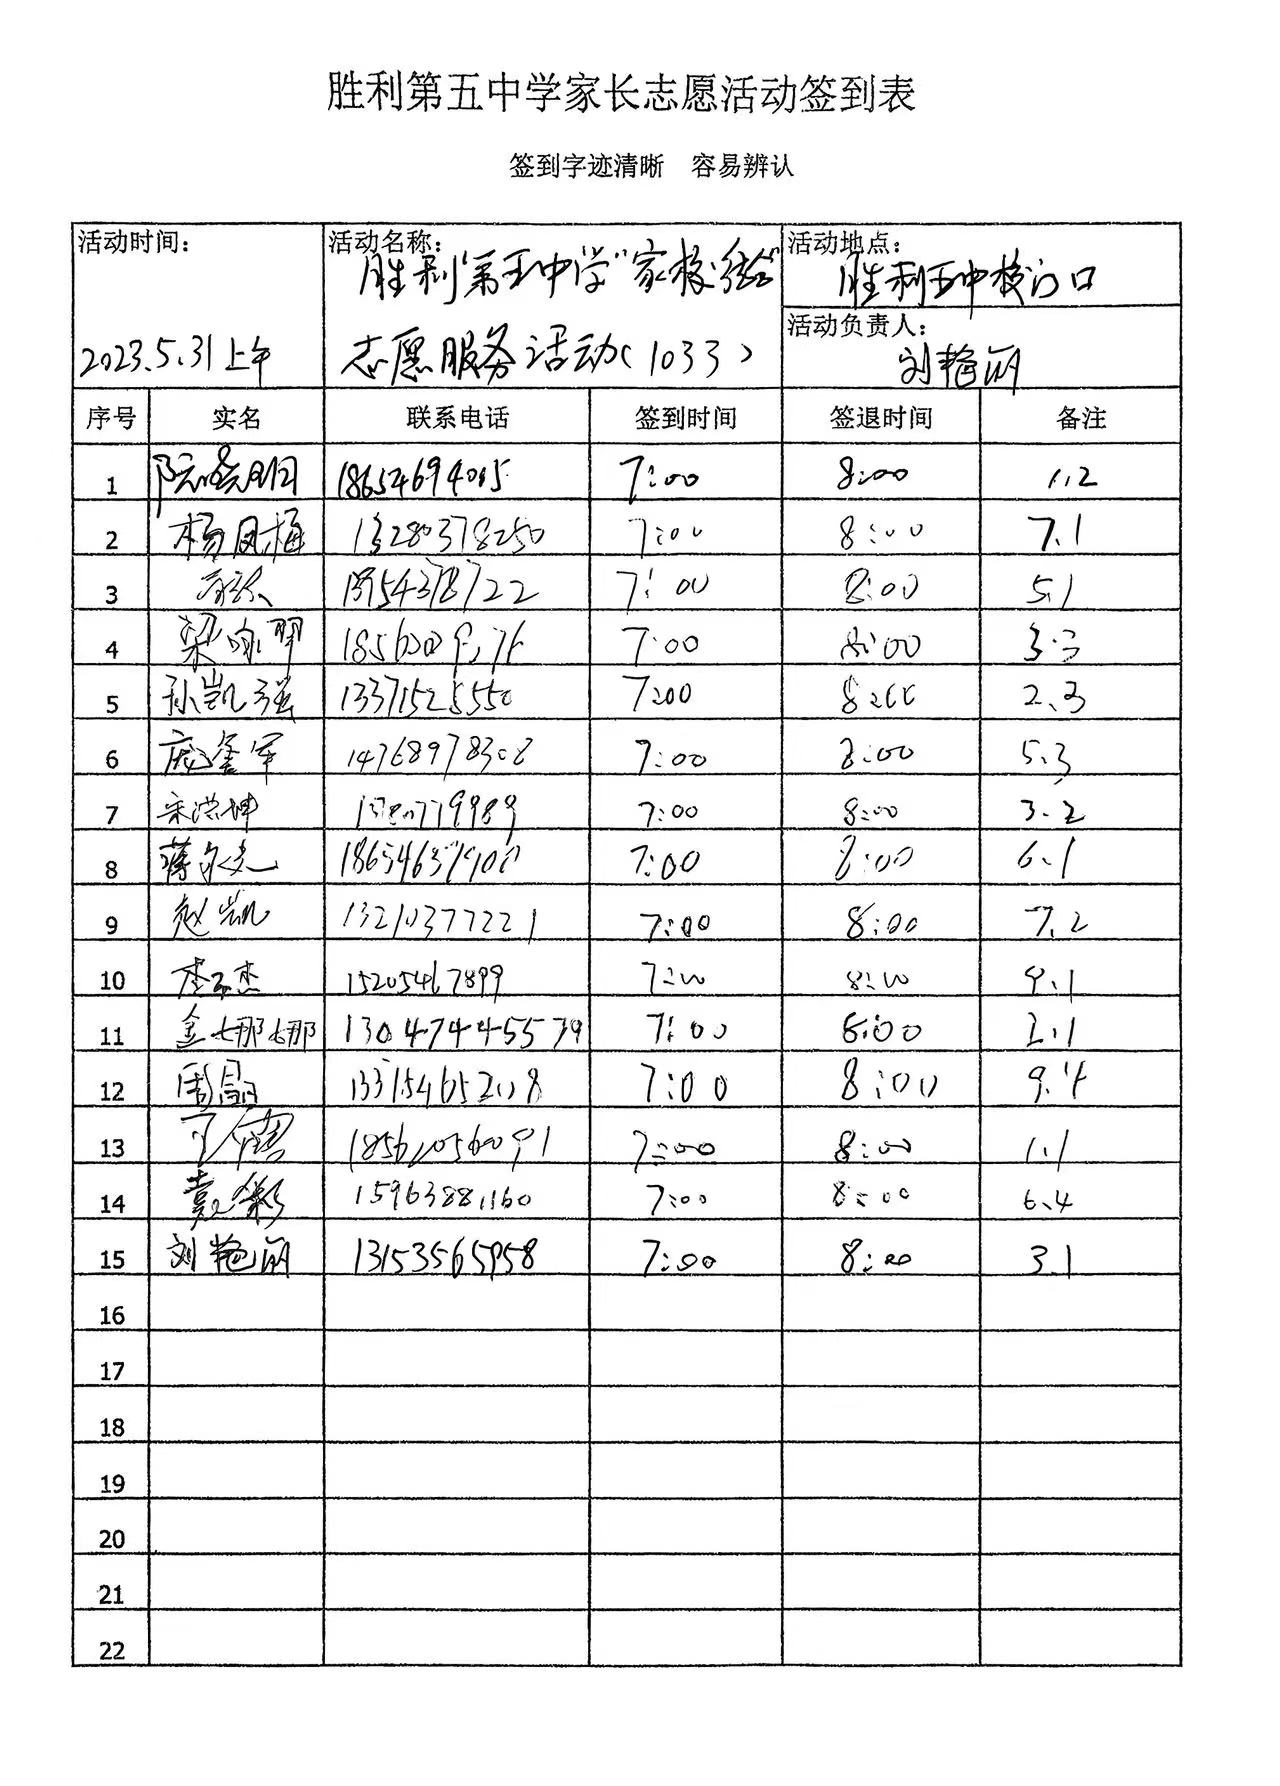 胜利第五中学家长志愿活动签到表
签到字迹清晰 容易辨认
活动时间: 活动名称: 活动地点:
胜利"第五中学"家校 胜利五中校门口
活动负责人:
2023.5.31上午 志愿服务活动(1033) 刘艳丽
序号 实名 联系电话 签到时间 签退时间 备注
1 阮晓明 18654694005 7:00 8:00 1.2
2 杨凤梅 13280378250 7:00 8:00 7.1
3 7:00 8:00 5.1
4 梁咏翠 7:00 8:00 3.3
5 孙凯强 13371525550 7:00 8:00 2.3
6 14768978308 7:00 8:00 5.3
7 宋洪坤 7:00 8:00 3.2
8 蒋 7:00 8:00 6.1
9 赵凯 13210377221 7:00 8:00 7.2
10 15205467899 7:00 8:00 9.1
11 金娜娜 13047445579 7:00 8:00 2.1
12 周晶 7:00 8:00 9.4
13 18562056091 7:00 8:00 1.1
14 袁彩 15963881160 7:00 8:00 6.4
15 刘艳丽 13153565958 7:00 8:00 3.1
16
17
18
19
20
21
22